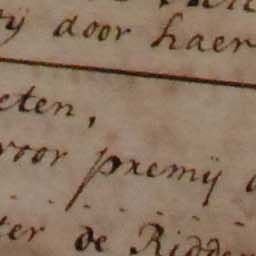 door haer
eten,
voor premij
ter de Ridder